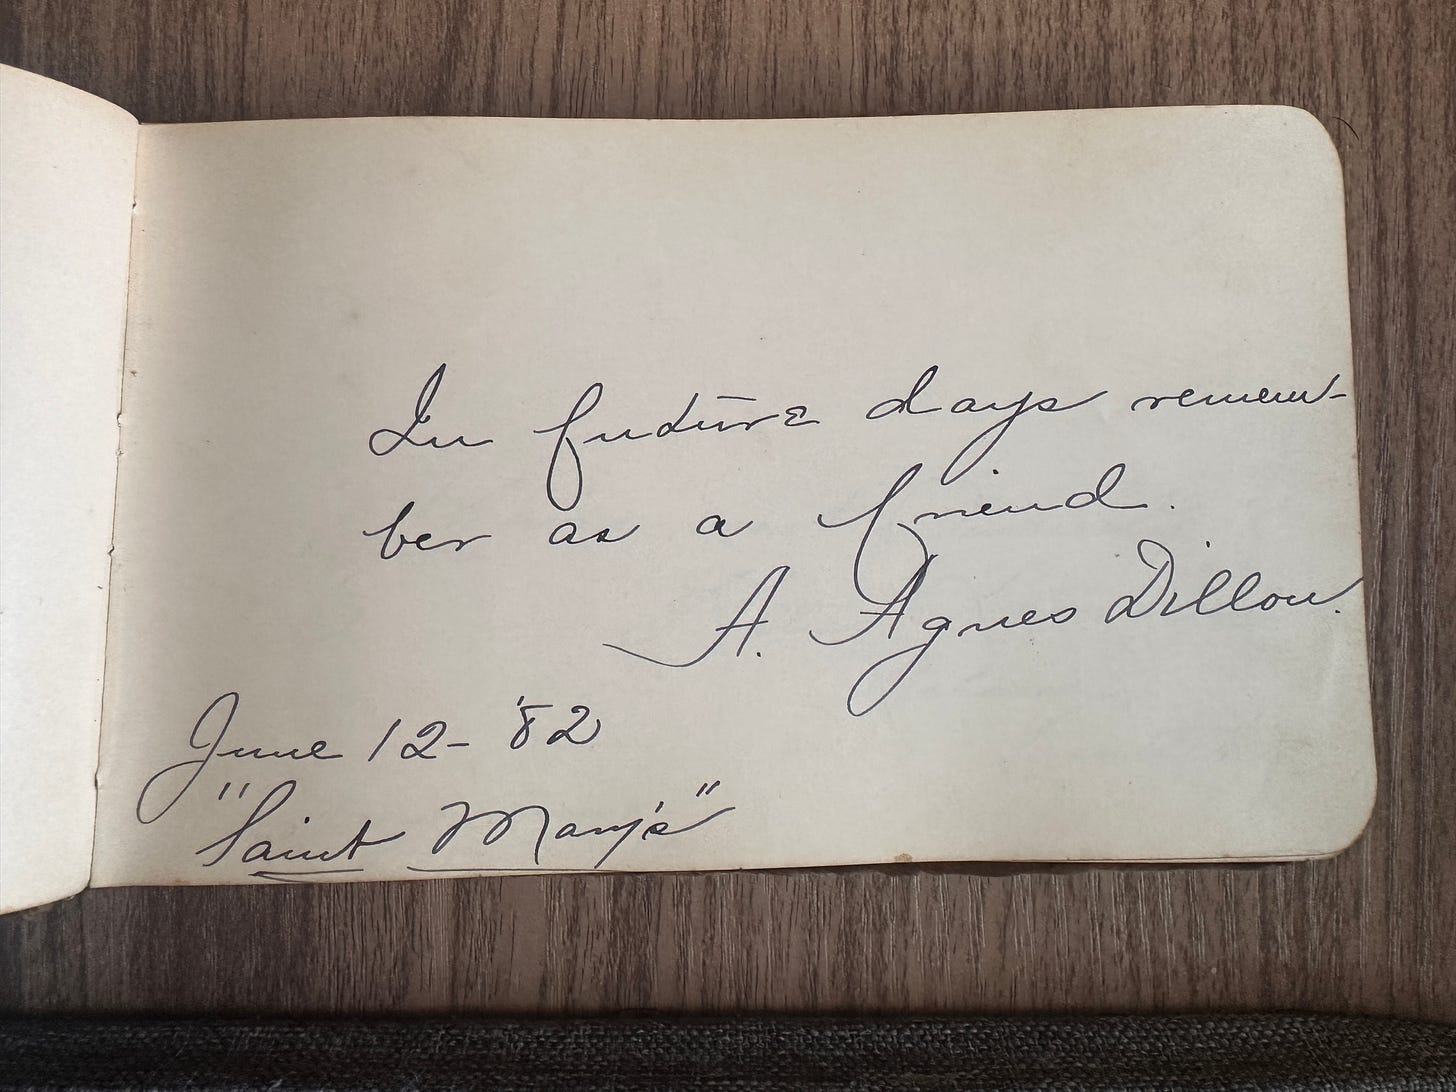 In future days remem-
ber as a friend.
A. Agnes Dillon.
June 12- '82
"Saint Mary's"